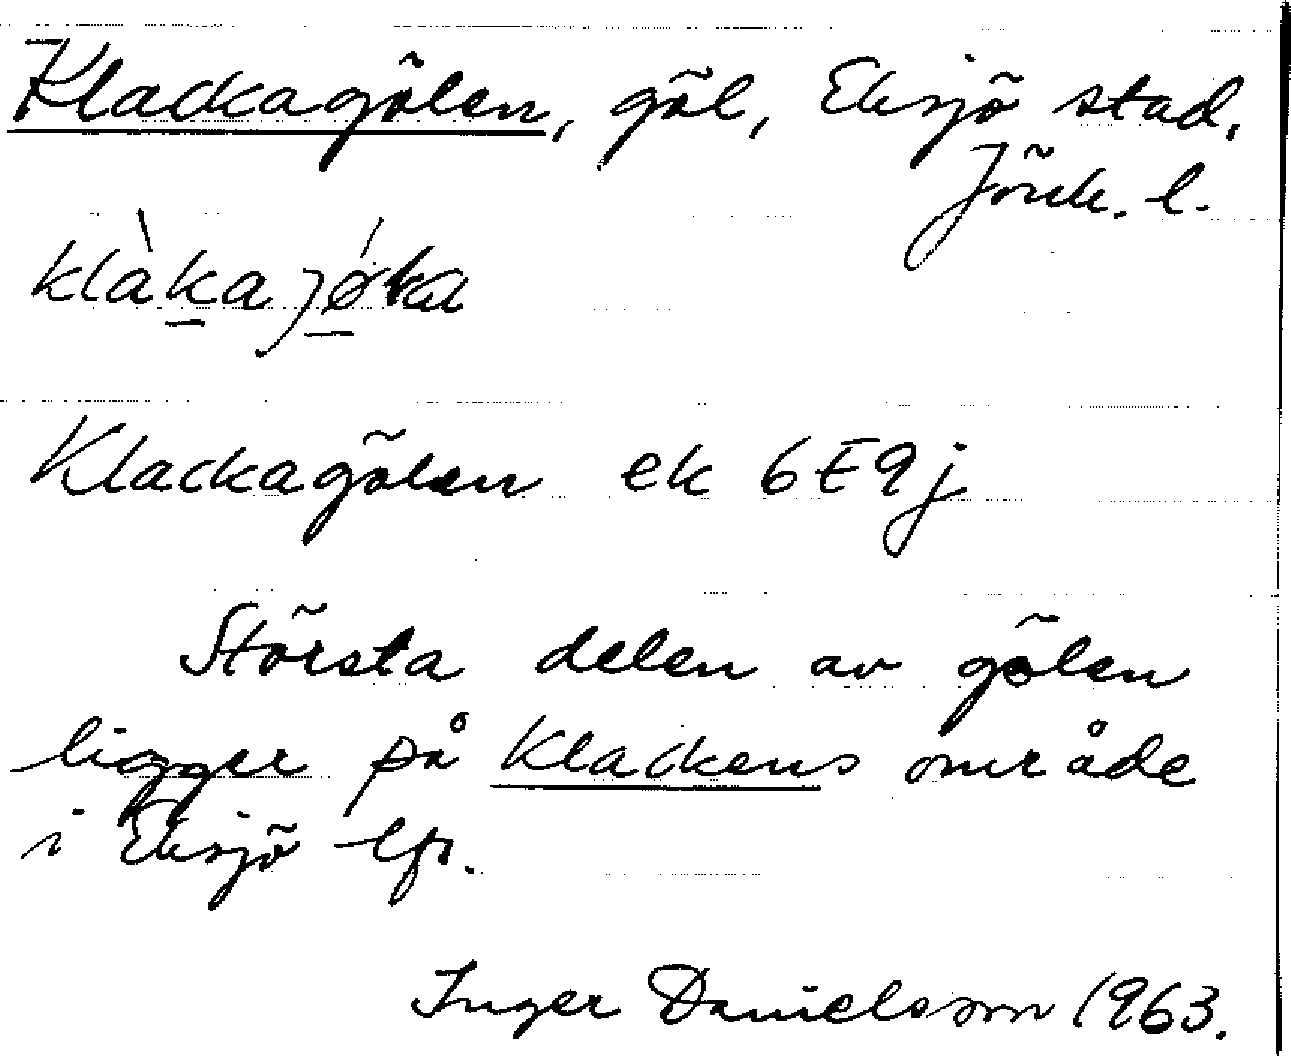 Klackagölen, göl, Eksjö stad,
Jönk. l.
klàka jø̀ka
Klackagölen ek 6E9j
Största delen av gölen
ligger på Klackens område
i Eksjö lfs.
Inger Danielsson 1963.